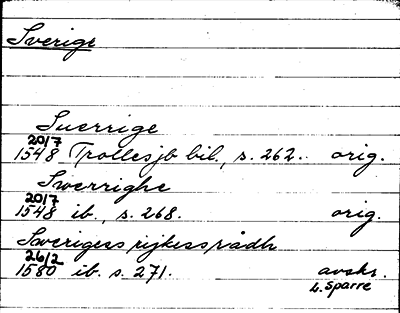 Sverige
Suerrige
20/7
1548 Trollesjb bil., s. 262. orig.
Swerrighe
20/7
1548 ib., s. 268. orig.
Swerigess rijkess rådh
26/2
1580 ib. s. 271. avskr.
L. Sparre